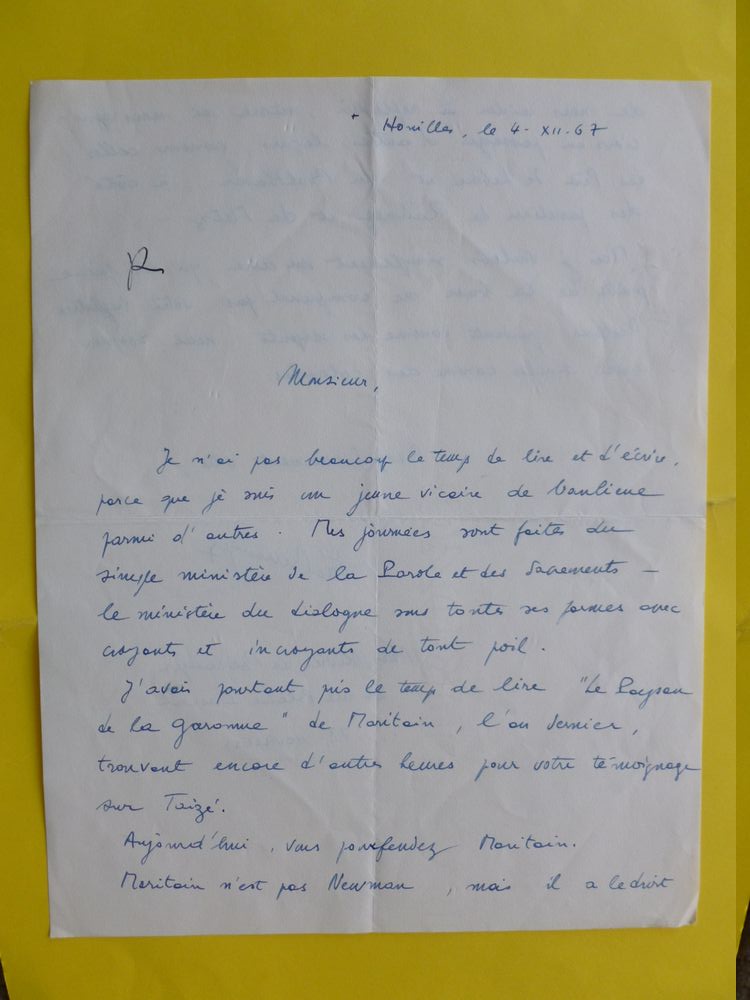 + Houilles, le 4-XII-67
R
Monsieur,
Je n'ai pas beaucoup le temps de lire et d'écrire,
parce que je suis un jeune vicaire de banlieue
parmi d'autres. Mes journées sont faites du
simple ministère de la Parole et des Sacrements —
le ministère du dialogue sous toutes ses formes avec
croyants et incroyants de tout poil.
J'avais pourtant pris le temps de lire "Le Paysan
de la Garonne" de Maritain, l'an dernier,
trouvant encore d'autres heures pour votre témoignage
sur Taizé.
Aujourd'hui, vous pourfendez Maritain.
Maritain n'est pas Newman, mais il a le droit